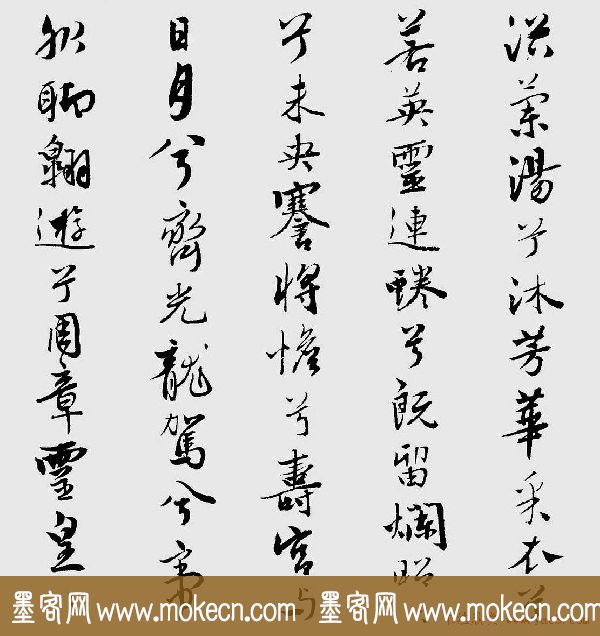 浴蘭湯兮沐芳華采衣兮
若英靈連蜷兮既留爛昭
兮未央謇將憺兮壽宮與
日月兮齊光龍駕兮帝
服聊翱遊兮周章靈皇
墨客网 www.mokecn.com 墨客网 www.mokecn.com